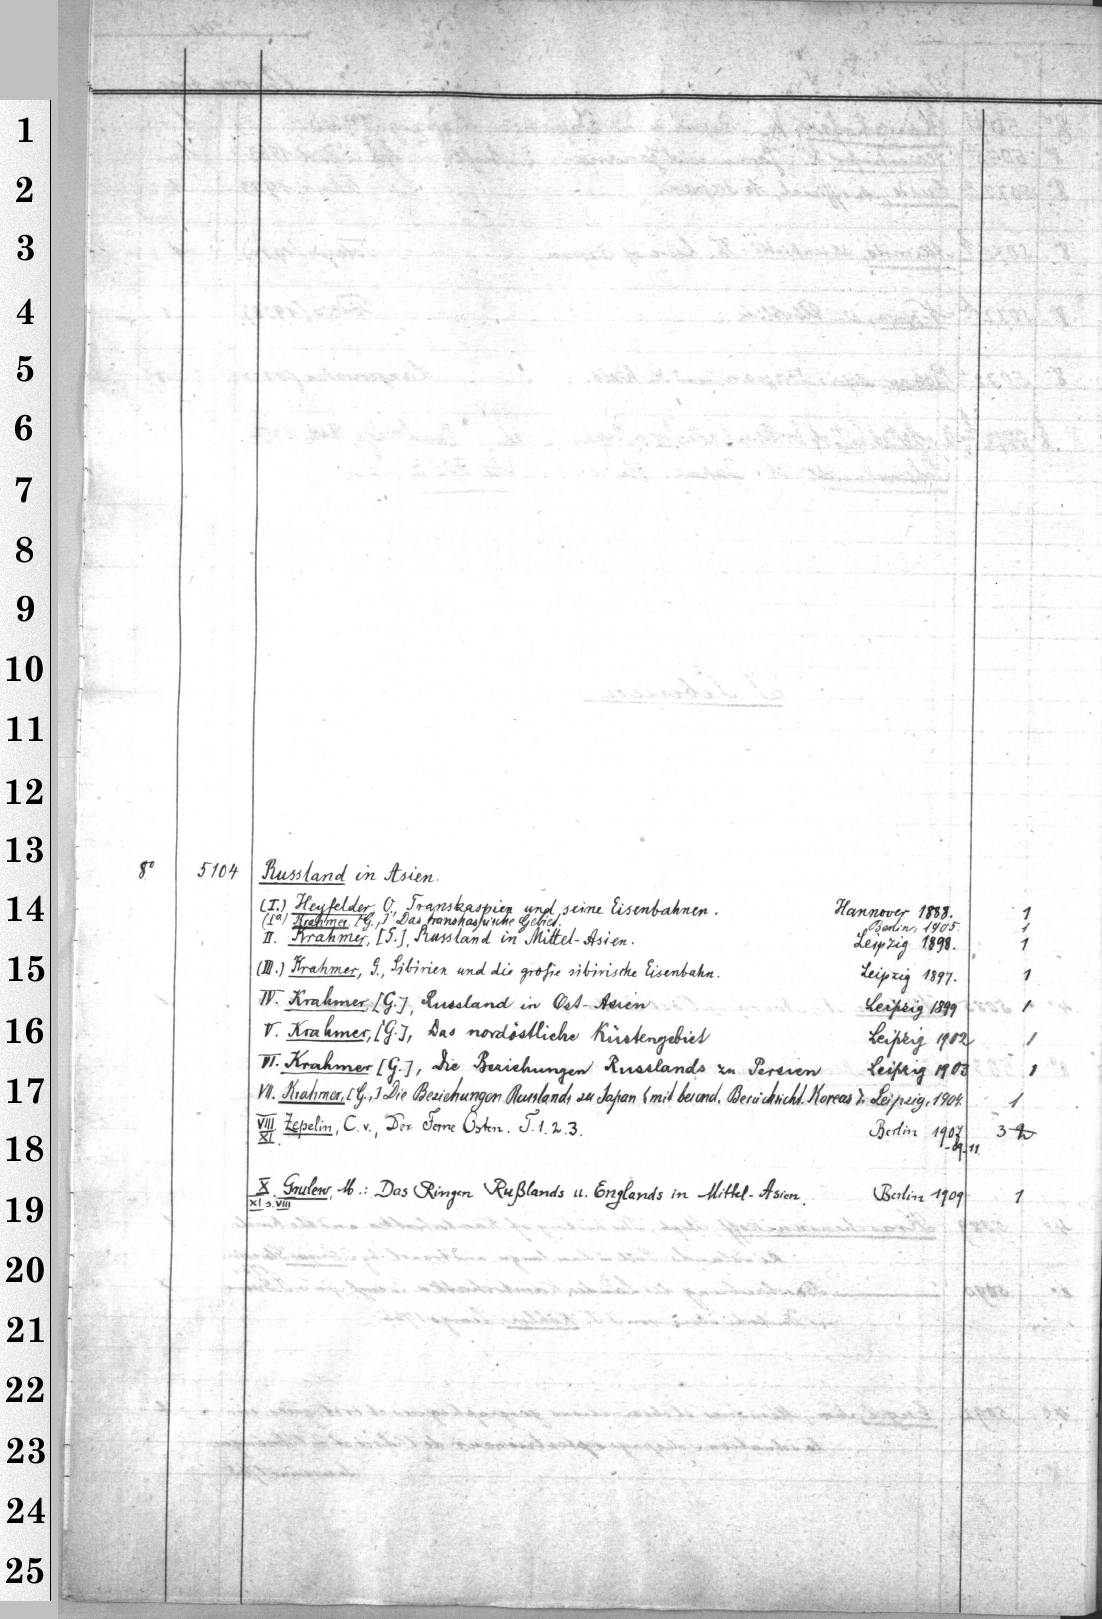 1
2
3
4
5
6
7
8
9
10
11
12
13
8° 5104 Russland in Asien.
14
(I.) Heyfelder, O., Transkaspien und seine Eisenbahnen. Hannover 1888. 1
(Ia) Krahmer [G.,] Das transkaspische Gebiet. Berlin, 1905. 1
II. Krahmer, [G.], Russland in Mittel-Asien. Leipzig 1898. 1
15
(III.) Krahmer, G., Sibirien und die große sibirische Eisenbahn. Leipzig 1897. 1
IV. Krahmer, [G.], Russland in Ost-Asien Leipzig 1899 1
16
V. Krahmer, [G.], Das nordöstliche Küstengebiet Leipzig 1902 1
VI. Krahmer [G.], Die Beziehungen Russlands zu Persien Leipzig 1903 1
17
VII. Krahmer, [G.,] Die Beziehungen Russlands zu Japan (mit besond. Berücksicht. Koreas). Leipzig, 1904. 1
VIII Zepelin, C. v., Der Ferne Osten. T. 1. 2. 3. Berlin 1907 3 2
XI. -09-11.
18
X. Grulew, M.: Das Ringen Rußlands u. Englands in Mittel-Asien. Berlin 1909 1
XI s. VIII
19
20
21
22
23
24
25